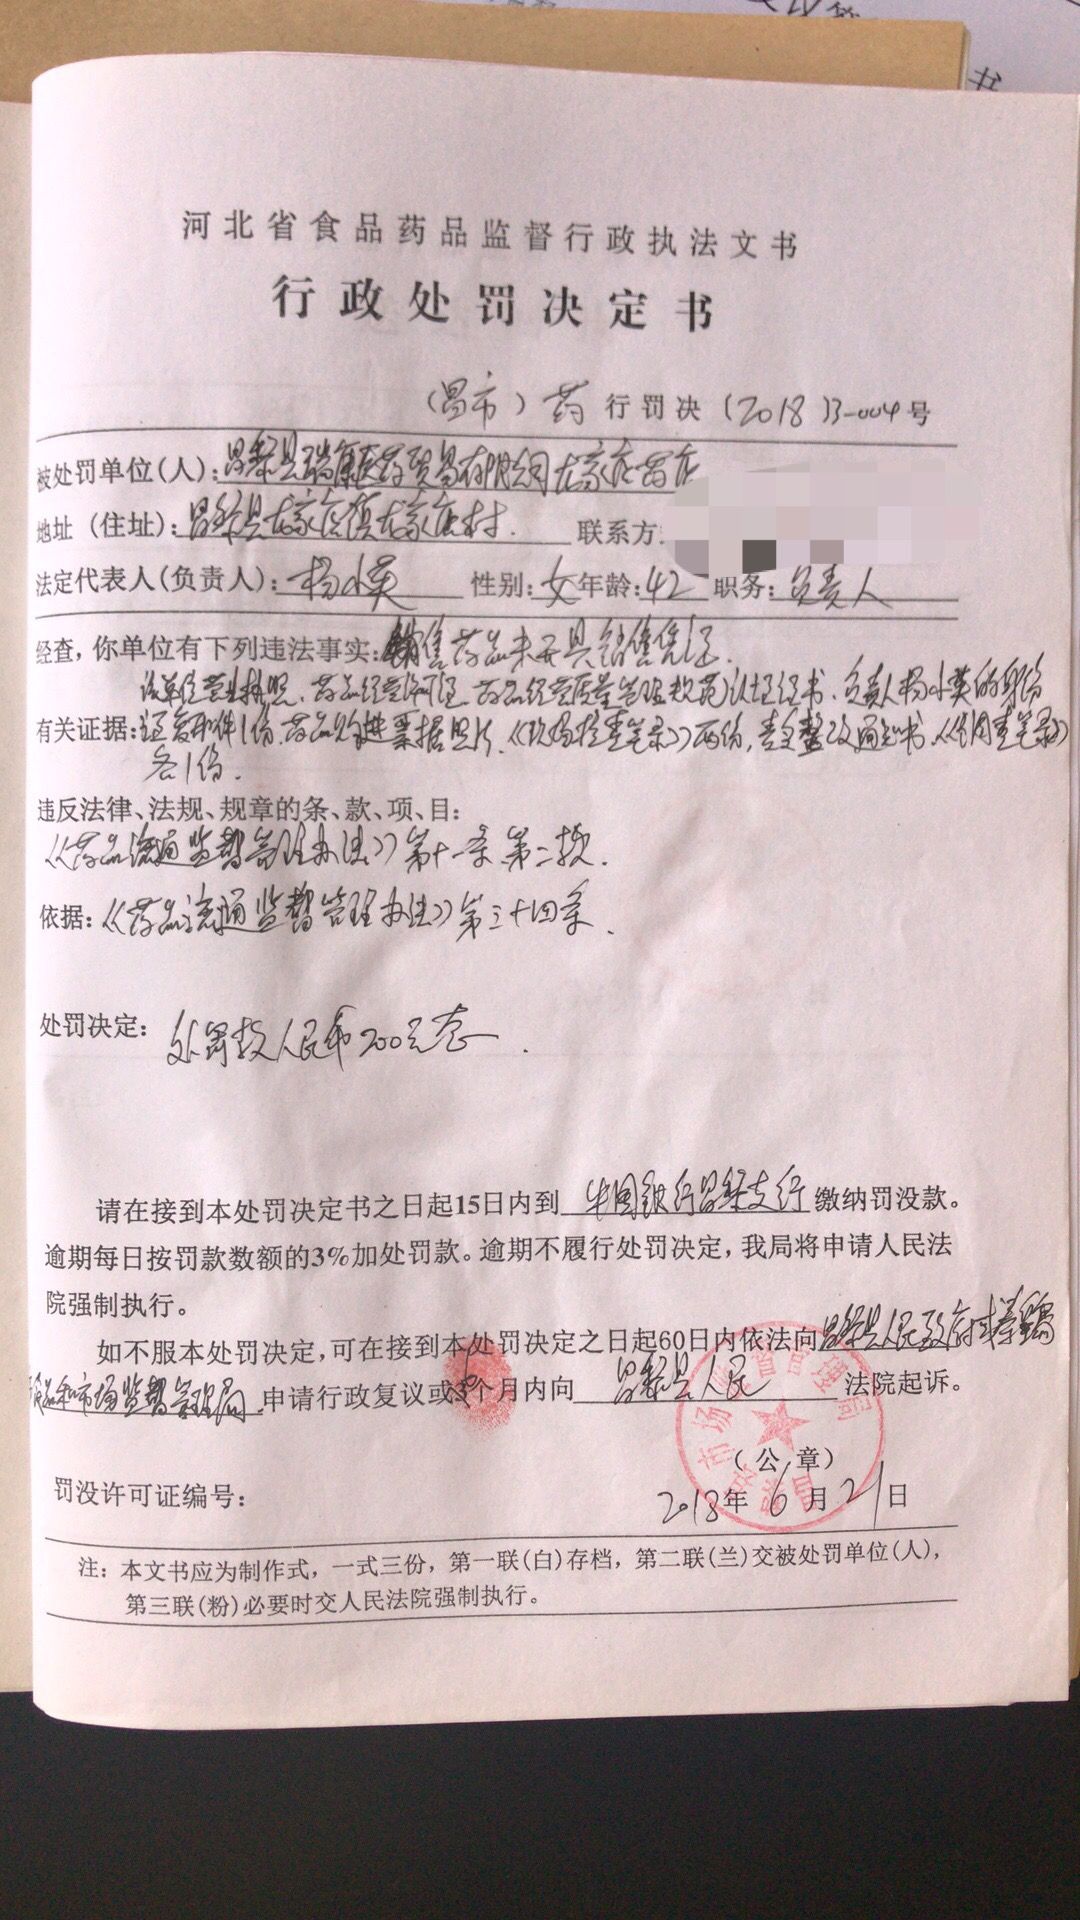 书
河北省食品药品监督行政执法文书
行政处罚决定书
(昌市)药行罚决(2018)3-004号
被处罚单位(人):昌黎县瑞康医药贸易有限公司龙家店药店
地址(住址):昌黎县龙家店镇龙家店村. 联系方
法定代表人(负责人):杨小英 性别:女年龄:42 职务:负责人
经查,你单位有下列违法事实:销售药品未开具销售凭证.
该单位营业执照、药品经营许可证、药品经营质量管理规范认证证书、负责人杨小英的身份
有关证据:证复印件1份、药品购进票据照片、《现场检查笔录》两份,责令整改通知书、《调查笔录》
各1份.
违反法律、法规、规章的条、款、项、目:
《药品流通监督管理办法》第十一条第二款.
依据:《药品流通监督管理办法》第三十四条.
处罚决定:处罚款人民币200元整.
请在接到本处罚决定书之日起15日内到 中国银行昌黎支行 缴纳罚没款。
逾期每日按罚款数额的3%加处罚款。逾期不履行处罚决定,我局将申请人民法
院强制执行。
如不服本处罚决定,可在接到本处罚决定之日起60日内依法向昌黎县人民政府或秦皇岛
食品和市场监督管理局 申请行政复议或 个月内向 昌黎县人民 法院起诉。
(公章)
罚没许可证编号:
2018年6月21日
注:本文书应为制作式,一式三份,第一联(白)存档,第二联(兰)交被处罚单位(人),
第三联(粉)必要时交人民法院强制执行。